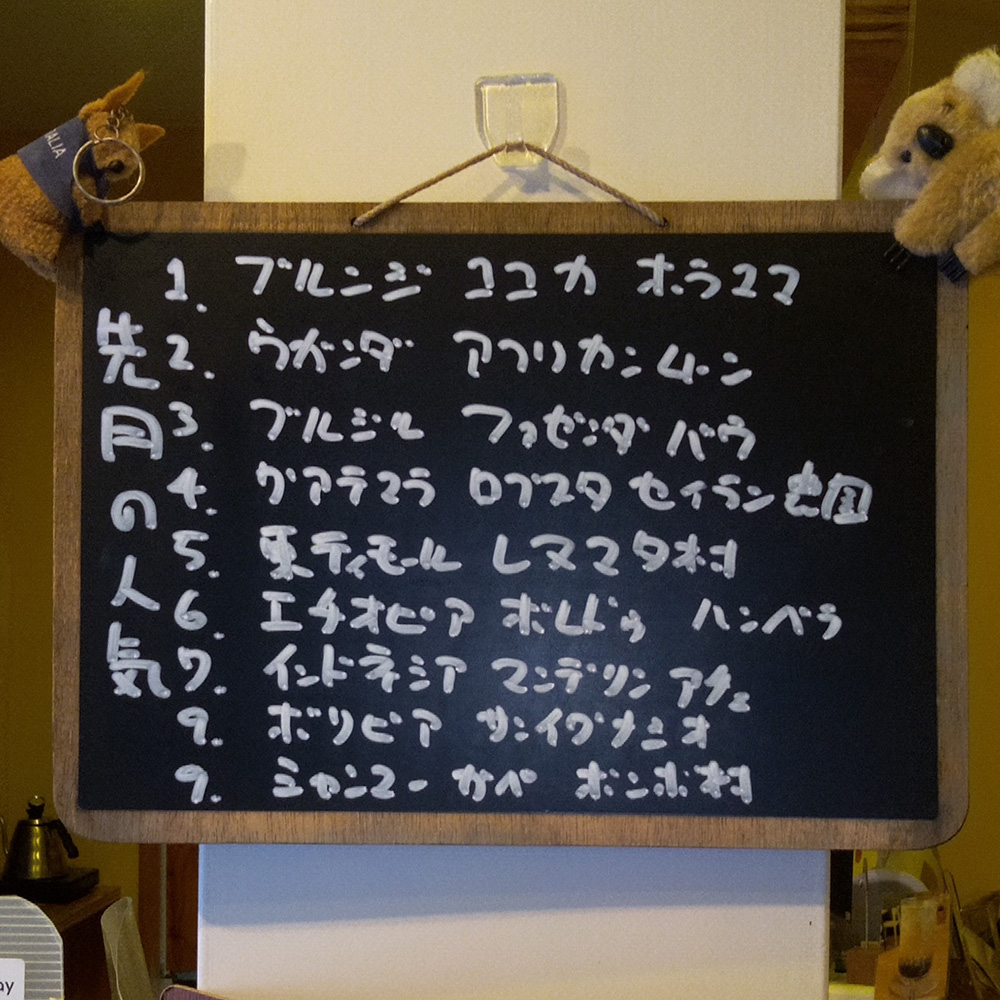 先月の人気
1. ブルンジ ココカ ホラココ
2. ウガンダ アフリカンムーン
3. ブルジル ファゼンダ バウ
4. グアテマラ ロブスタ セイラン農園
5. 東ティモール レヌマタ村
6. エチオピア ボレドゥ ハンベラ
7. インドネシア マンデリン アチェ
9. ボリビア サンイグナシオ
9. ミャンマー カペ ボンボ村
ALIA
ay